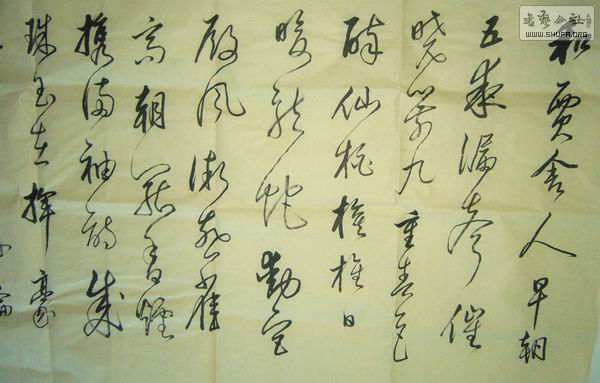 書藝公社
WWW.SHUFA.ORG
和賈舍人早朝
五夜漏聲催
曉箭九重春色
醉仙桃旌旗日
暖龍蛇動宮
殿風微燕雀
高朝罷香煙
攜滿袖詩成
珠玉在揮毫